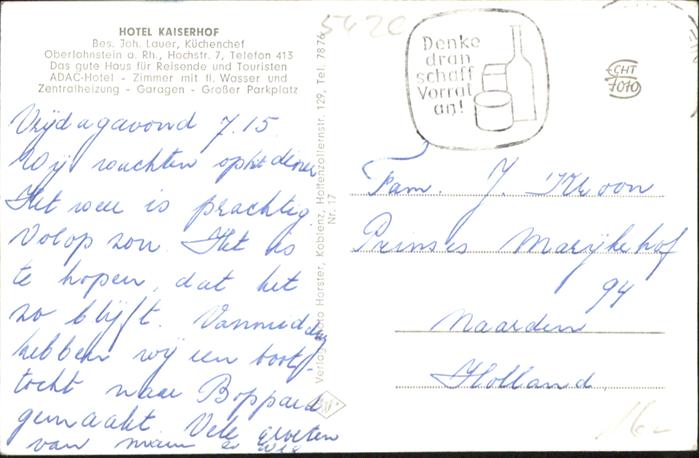 HOTEL KAISERHOF
Bes. Joh. Lauer, Küchenchef
Oberlahnstein a. Rh., Hochstr. 7, Telefon 413
Das gute Haus für Reisende und Touristen
ADAC-Hotel - Zimmer mit fl. Wasser und
Zentralheizung - Garagen - Großer Parkplatz
Vrijdagavond 7.15.
Wij wachten op het diner
Het weer is prachtig
Volop zon. Het is
te hopen, dat het
zo blijft. Vanmiddag
hebben wij een boot-
tocht naar Boppard
gemaakt. Vele groeten
van
Verlag Foto Horster, Koblenz, Hohenzollernstr. 129, Tel. 7876
Nr. 17
542C
Denke
dran
schaff
Vorrat
an!
CHT
7010
Fam. J. Kroon
Prinses Marijkehof
94
Naarden
Holland.
16-